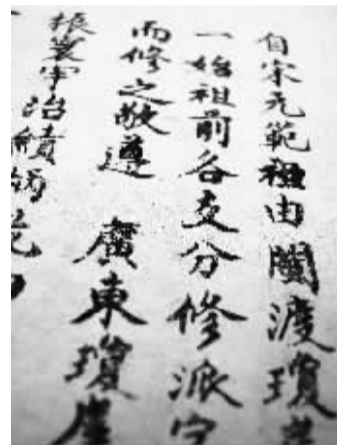 自宋元範祖由閩渡瓊
一始祖前各支分修派字
而修之敬遵 廣東瓊崖
振寰宇治績